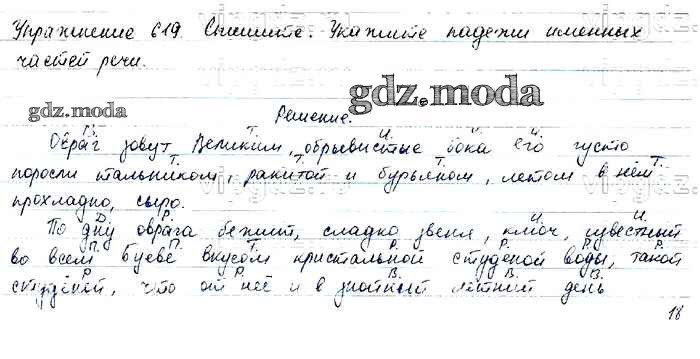 Упражнение 619. Спишите. Укажите падежи именных
частей речи.
gdz.moda
gdz.moda
Решение.
Овраг зовут Великим, обрывистые бока его густо
поросли тальником, ракитой и бурьяном, летом в нём
прохладно, сыро.
По дну оврага бежит, сладко звеня, ключ, известный
во всем Буеве вкусом кристальной студеной воды, такой
студёной, что от неё и в знойный летний день
18